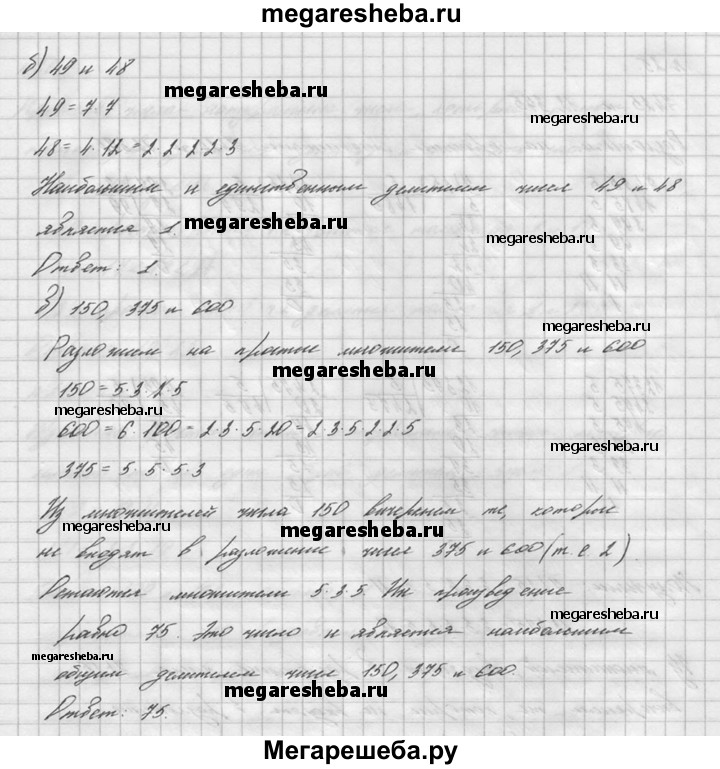 megaresheba.ru
б) 49 и 48
megaresheba.ru
49 = 7·7
megaresheba.ru
48 = 4·12 = 2·2·2·2·3
Наибольшим и единственным делителем чисел 49 и 48
является 1.
megaresheba.ru
megaresheba.ru
Ответ: 1.
в) 150, 375 и 600
megaresheba.ru
Разложим на простые множители 150, 375 и 600
megaresheba.ru
150 = 5·3·2·5
megaresheba.ru
600 = 6·100 = 2·3·5·20 = 2·3·5·2·2·5
megaresheba.ru
375 = 5·5·5·3
Из множителей числа 150 вычеркнем те, которые
megaresheba.ru
megaresheba.ru
не входят в разложение чисел 375 и 600 (т.е. 2).
Остаются множители 5·3·5. Их произведение
megaresheba.ru
равно 75. Это число и является наибольшим
megaresheba.ru
общим делителем чисел 150, 375 и 600.
megaresheba.ru
Ответ: 75.
Мегарешеба.ру